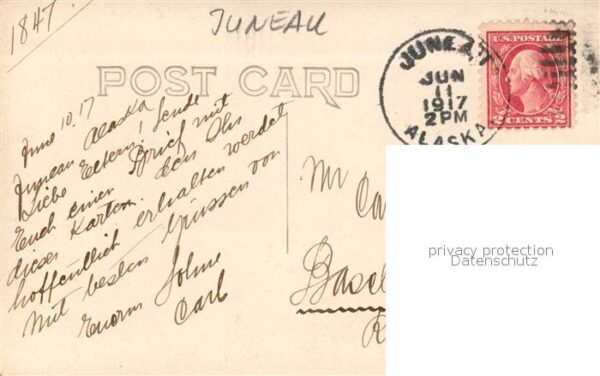 1847.
JUNEAU
POST CARD
JUNEAU
JUN
11
1917
2 PM
ALASKA
U.S. POSTAGE
2 CENTS 2
June 10. 17
Juneau Alaska
Liebe Eltern! sende
Euch einen Brief mit
dieser Karten. den Ihr
hoffentlich erhalten werdet
Mit besten Grüssen von
Euerm Sohne
Carl
Mr Ca
Basel
privacy protection
Datenschutz